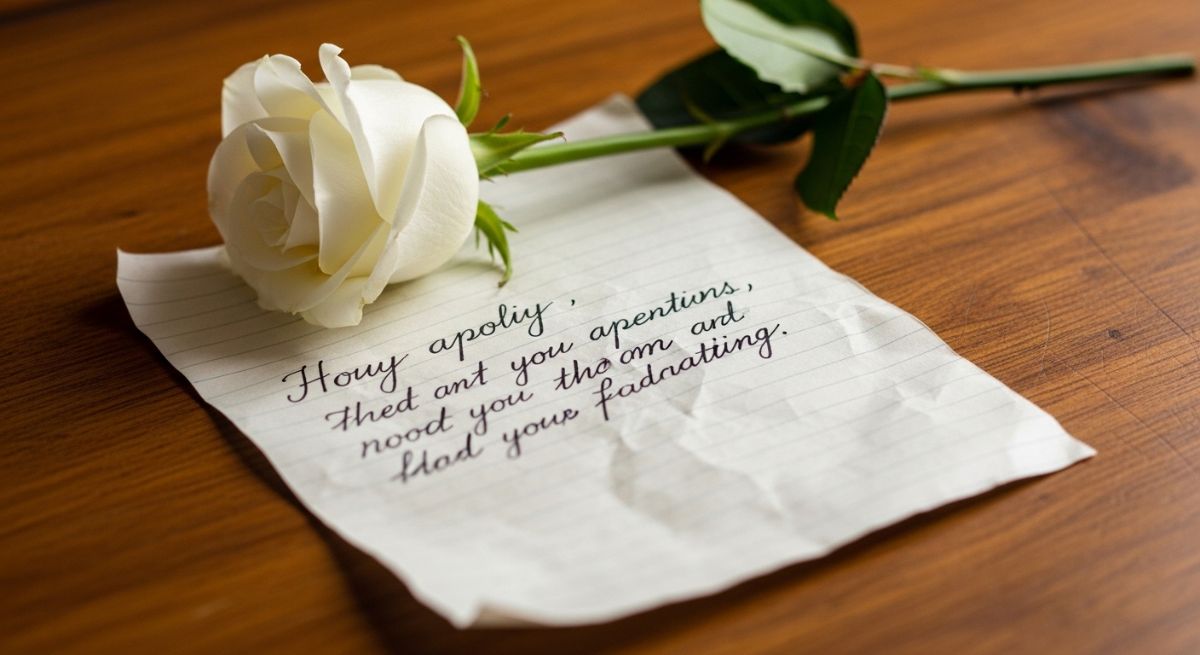 Houy apoliy ,
Thed ant you apentiuns,
nood you tho om ard
Had youe fadnatiing.